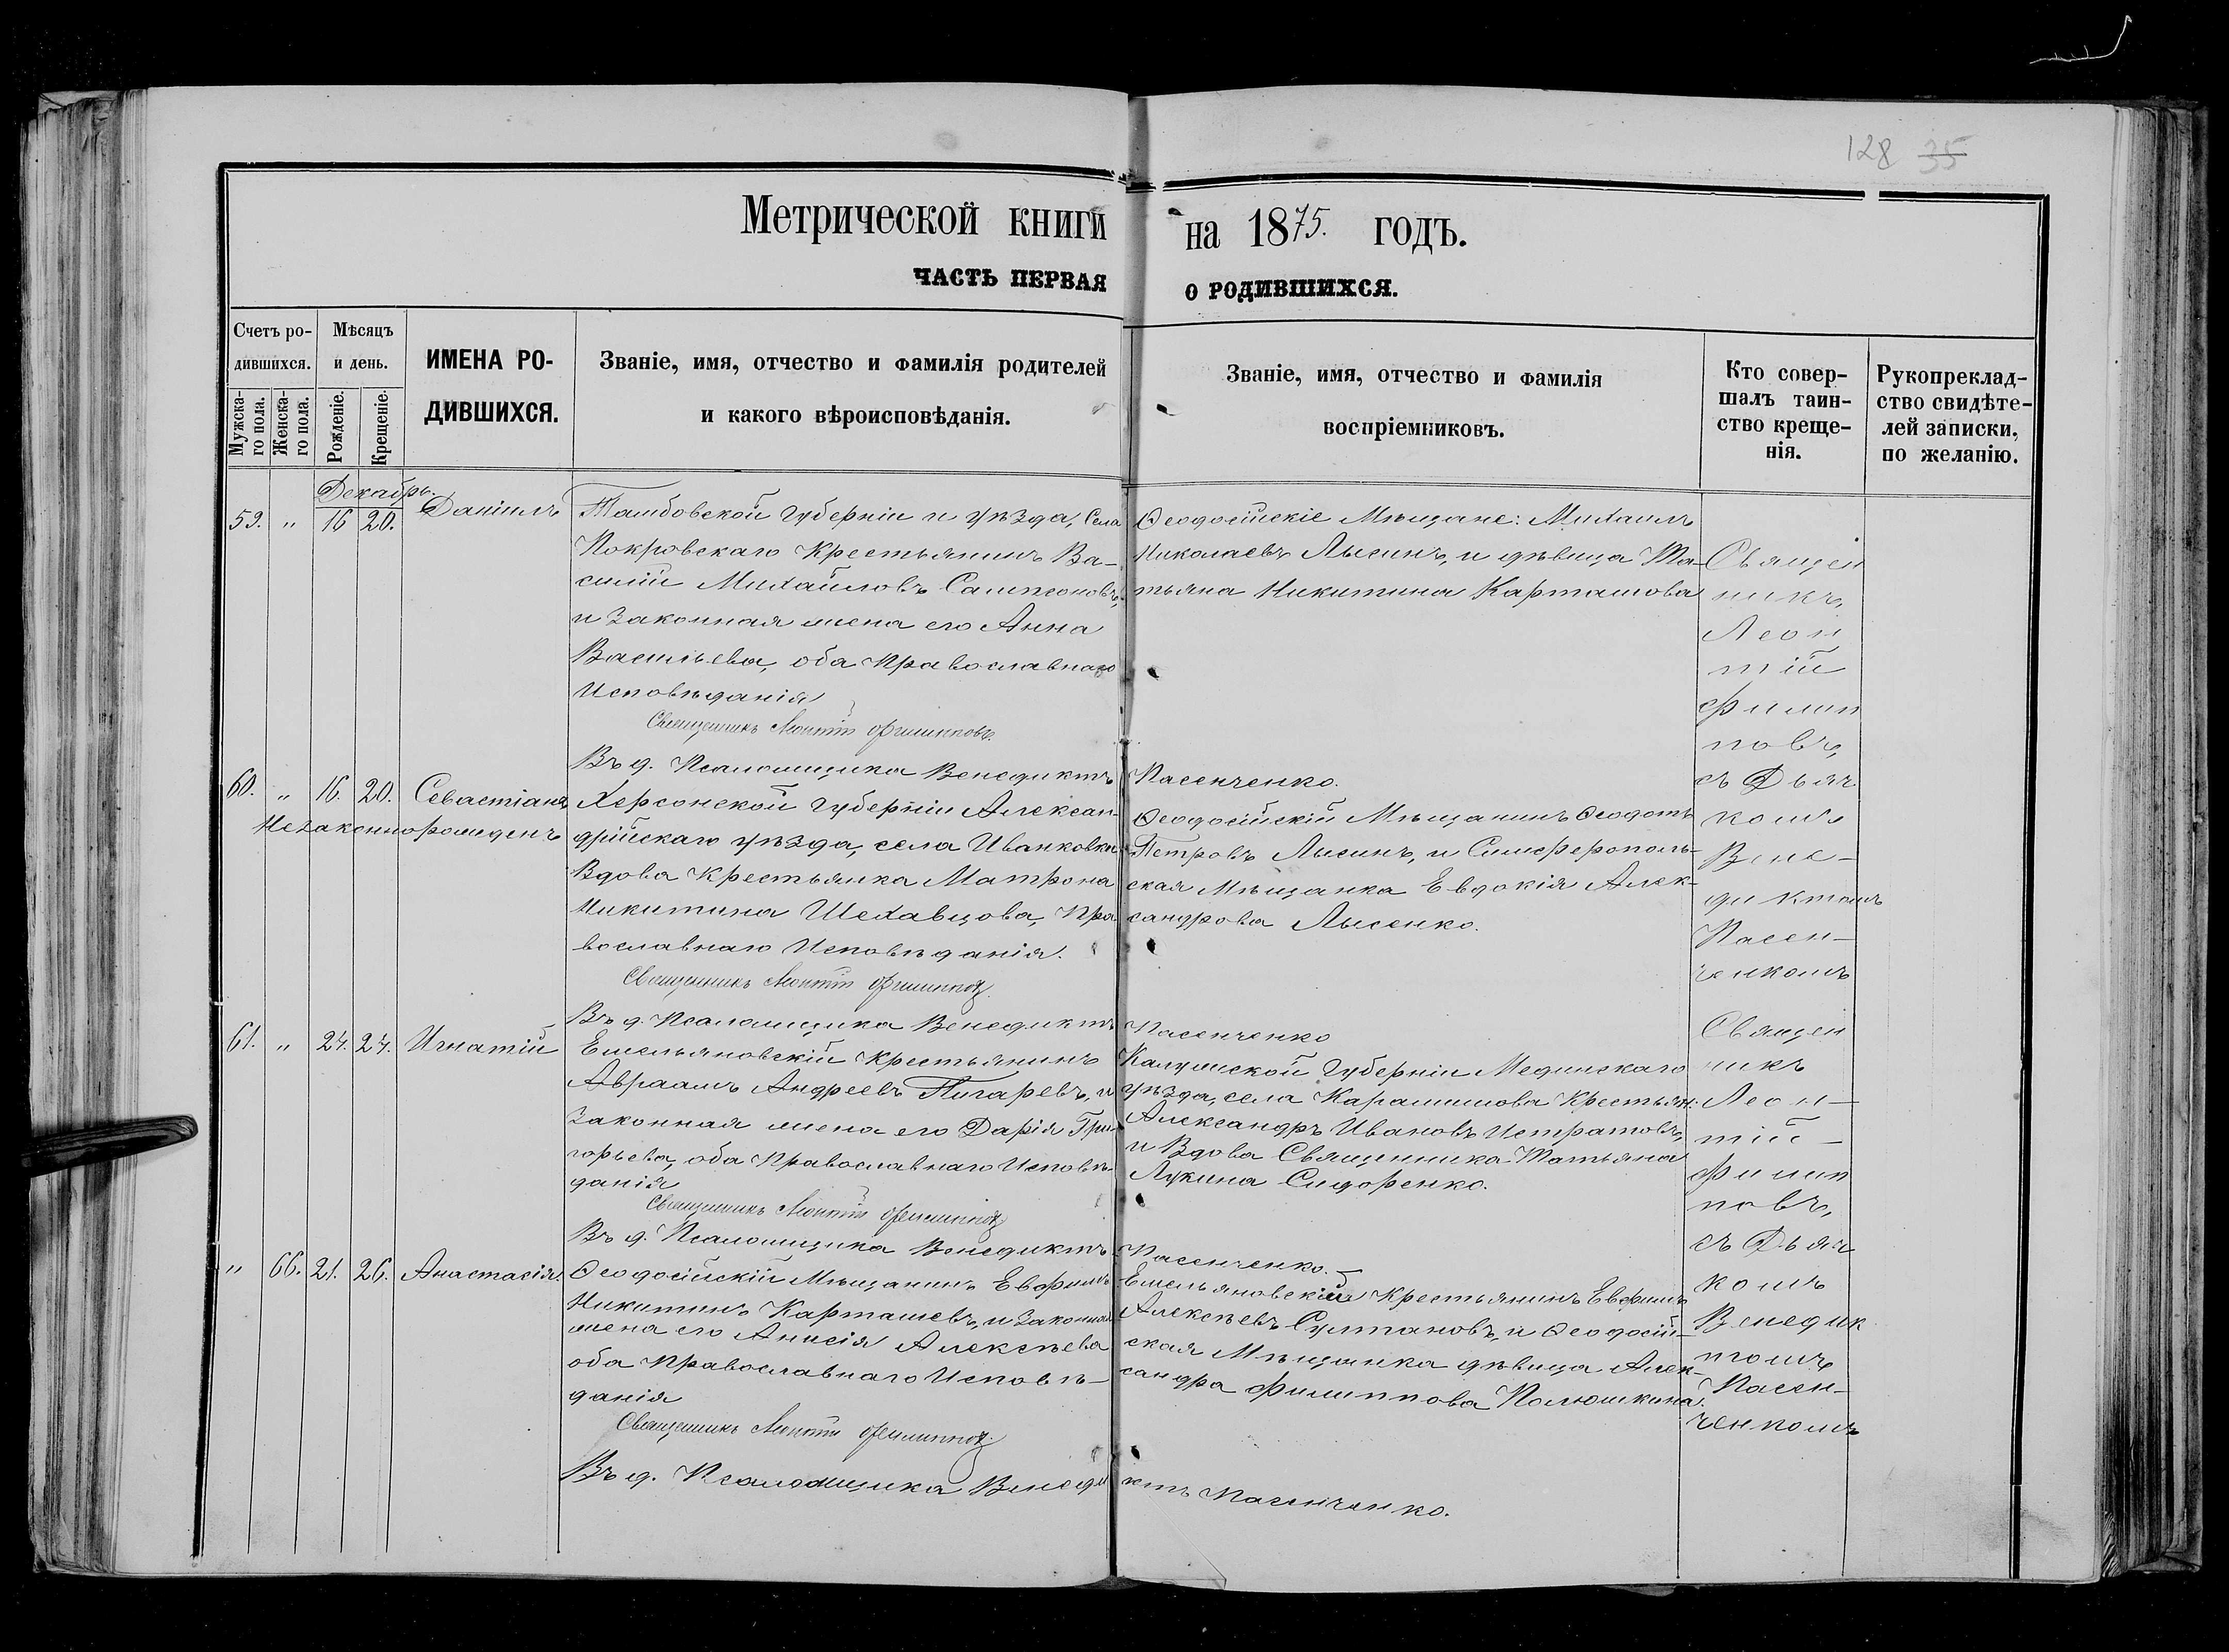 128 35
Метрической книги на 1875. годъ.
ЧАСТЬ ПЕРВАЯ О РОДИВШИХСЯ.
Счетъ ро-
дившихся.
Мужска-
го пола.
Женска-
го пола.
Мѣсяцъ
и день.
Рожденіе.
Крещеніе.
ИМЕНА РО-
ДИВШИХСЯ.
Званіе, имя, отчество и фамилія родителей
и какого вѣроисповѣданія.
Званіе, имя, отчество и фамилія
воспріемниковъ.
Кто совер-
шалъ таин-
ство креще-
нія.
Рукопреклад-
ство свидѣте-
лей записки,
по желанію.
Декабрь.
59. " 16 20. Даніилъ
Тамбовской Губерніи и уѣзда, Села
Покровскаго Крестьянинъ Ва-
силій Михайловъ Сампсоновъ,
и Законная жена его Анна
Васильева, оба Православнаго
Исповѣданія
Священникъ Леонтій Филипповъ.
Въ д. Псаломщика Венедиктъ Пасенченко.
Ѳеодосійскіе Мѣщане: Михаилъ
Николаевъ Лысинъ, и дѣвица Та-
тьяна Никитина Карташова
Священ
никъ,
Леон
тій
Филип
повъ,
съ Дьяч
комъ
Вене-
диктомъ
Пасен-
ченкомъ
60. " 16. 20. Севастіанъ
Незаконнорожденъ
Херсонской Губерніи Алексан-
дрійскаго уѣзда, села Иванковки
Вдова Крестьянка Матрона
Никитина Шехавцова, Пра
вославнаго Исповѣданія.
Священникъ Леонтій Филипповъ.
Въ д. Псаломщика Венедиктъ Пасенченко
Ѳеодосійскій Мѣщанинъ Ѳеодотъ
Петровъ Лысинъ, и Симферополь-
ская Мѣщанка Евдокія Алек-
сандрова Лысенко.
61. " 24. 24. Игнатій
Емельяновскій Крестьянинъ
Авраамъ Андреевъ Пигаревъ, и
Законная жена его Дарія Гри-
горьева, оба Православнаго Исповѣ-
данія
Священникъ Леонтій Филипповъ
Въ д. Псаломщика Венедиктъ Пасенченко.
Калужской Губерніи Мединскаго
уѣзда, села Карамышова Крестьян:
Александръ Ивановъ Истратовъ,
и Вдова Священника Татьяна
Лукина Сидоренко.
Священ
никъ
Леон-
тій-
Филип
повъ,
съ Дьяч
комъ
Венедик
томъ
Пасен-
ченкомъ
" 66. 21. 26. Анастасія.
Ѳеодосійскій Мѣщанинъ Евфимъ
Никитинъ Карташевъ, и Законная
жена его Анисія Алексѣева
оба Православнаго Исповѣ-
данія
Священникъ Леонтій Филипповъ.
Въ д. Псаломщика Венедиктъ Пасенченко.
Емельяновскій Крестьянинъ Евфимъ
Алексѣевъ Султановъ, и Ѳеодосій-
ская Мѣщанка дѣвица Алек-
сандра Филиппова Полюшкина.